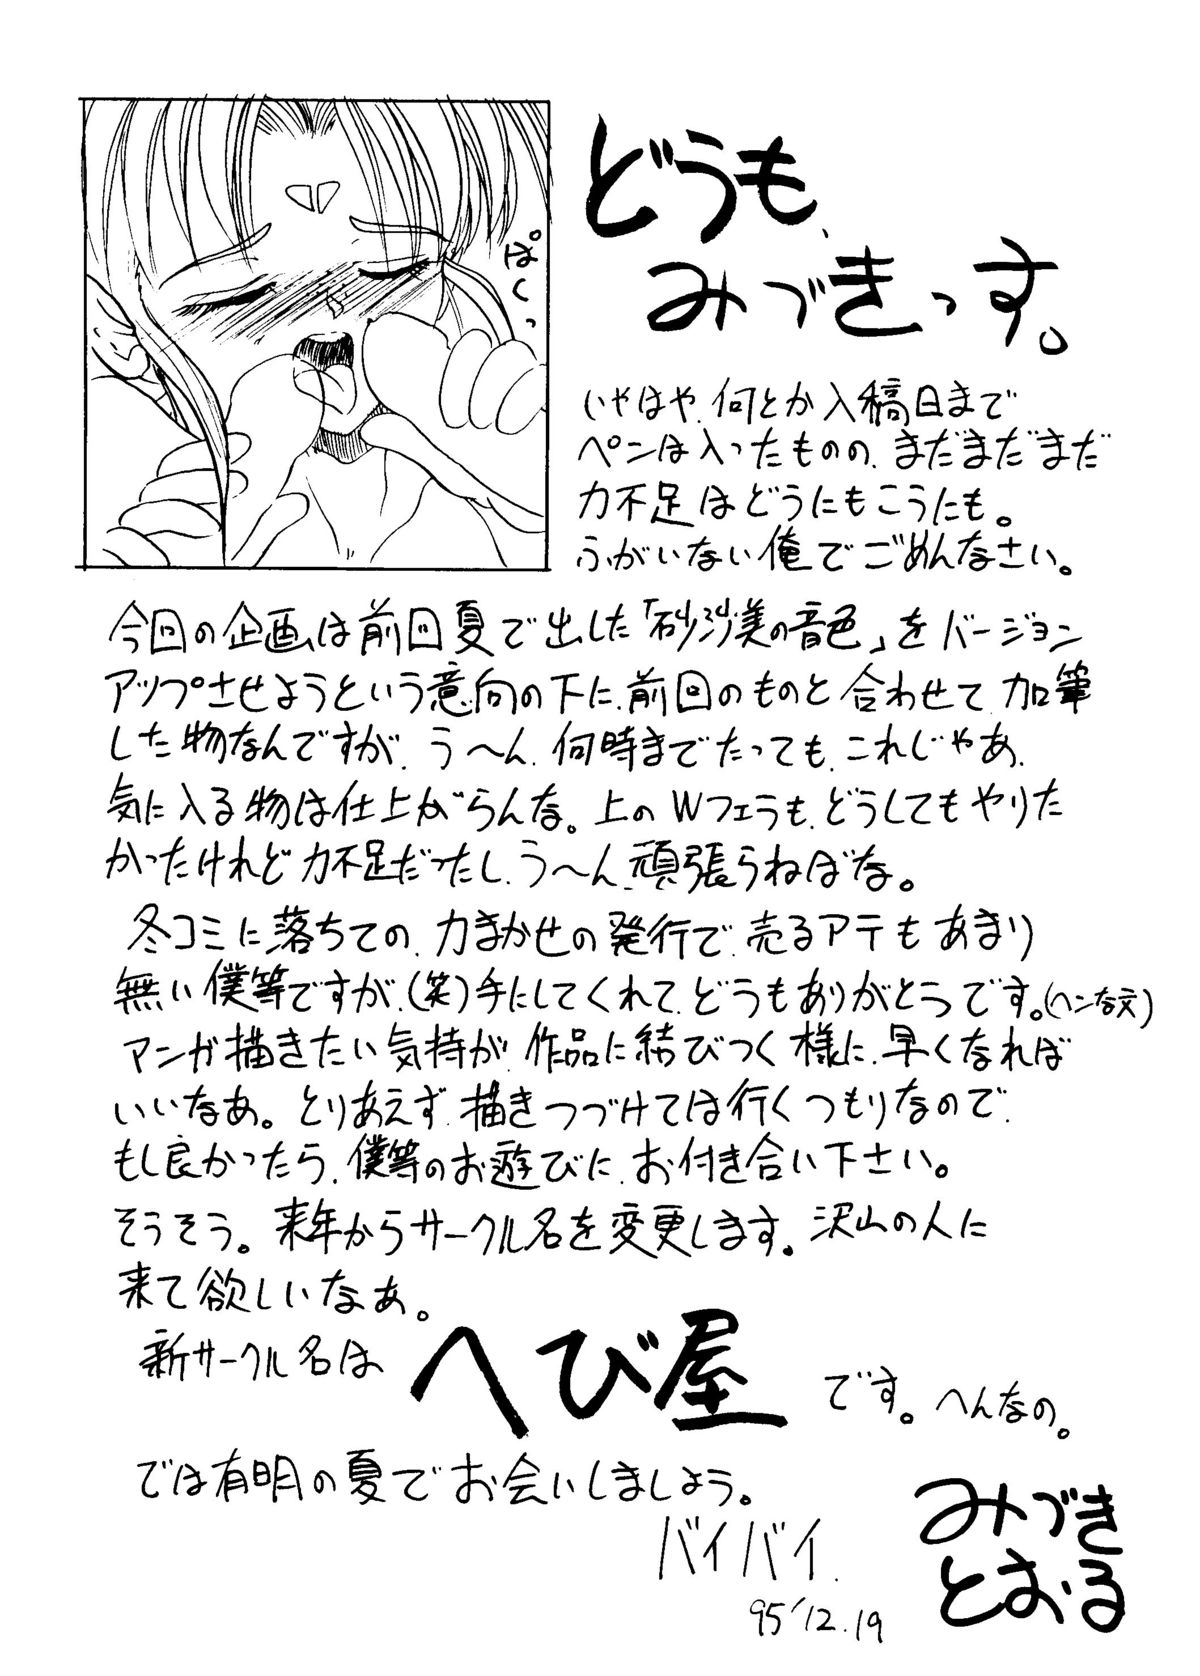 どうも、
みづきっす。
ぱくっ
いやはや、何とか入稿日まで
ペンは入ったものの、まだまだまだ
力不足はどうにもこうにも。
ふがいない俺でごめんなさい。
今回の企画は前回夏で出した「砂沙美の音色」をバージョン
アップさせようという意向の下に、前回のものと合わせて加筆
した物なんですが、う〜ん、何時までたっても、これじゃあ、
気に入る物は仕上がらんな。上のWフェラも、どうしてもやりた
かったけれど力不足だったし、う〜ん、頑張らねばな。
冬コミに落ちての、力まかせの発行で、売るアテもあまり
無い僕等ですが、(笑)手にしてくれて、どうもありがとうです。(ヘンな文)
マンガ描きたい気持が、作品に結びつく様に、早くなれば
いいなあ。とりあえず、描きつづけては行くつもりなので、
もし良かったら、僕等のお遊びに、お付き合い下さい。
そうそう。来年からサークル名を変更します。沢山の人に
来て欲しいなぁ。
新サークル名は へび屋 です。へんなの。
では有明の夏でお会いしましょう。
バイバイ.
95'12.19
みづき
とおる